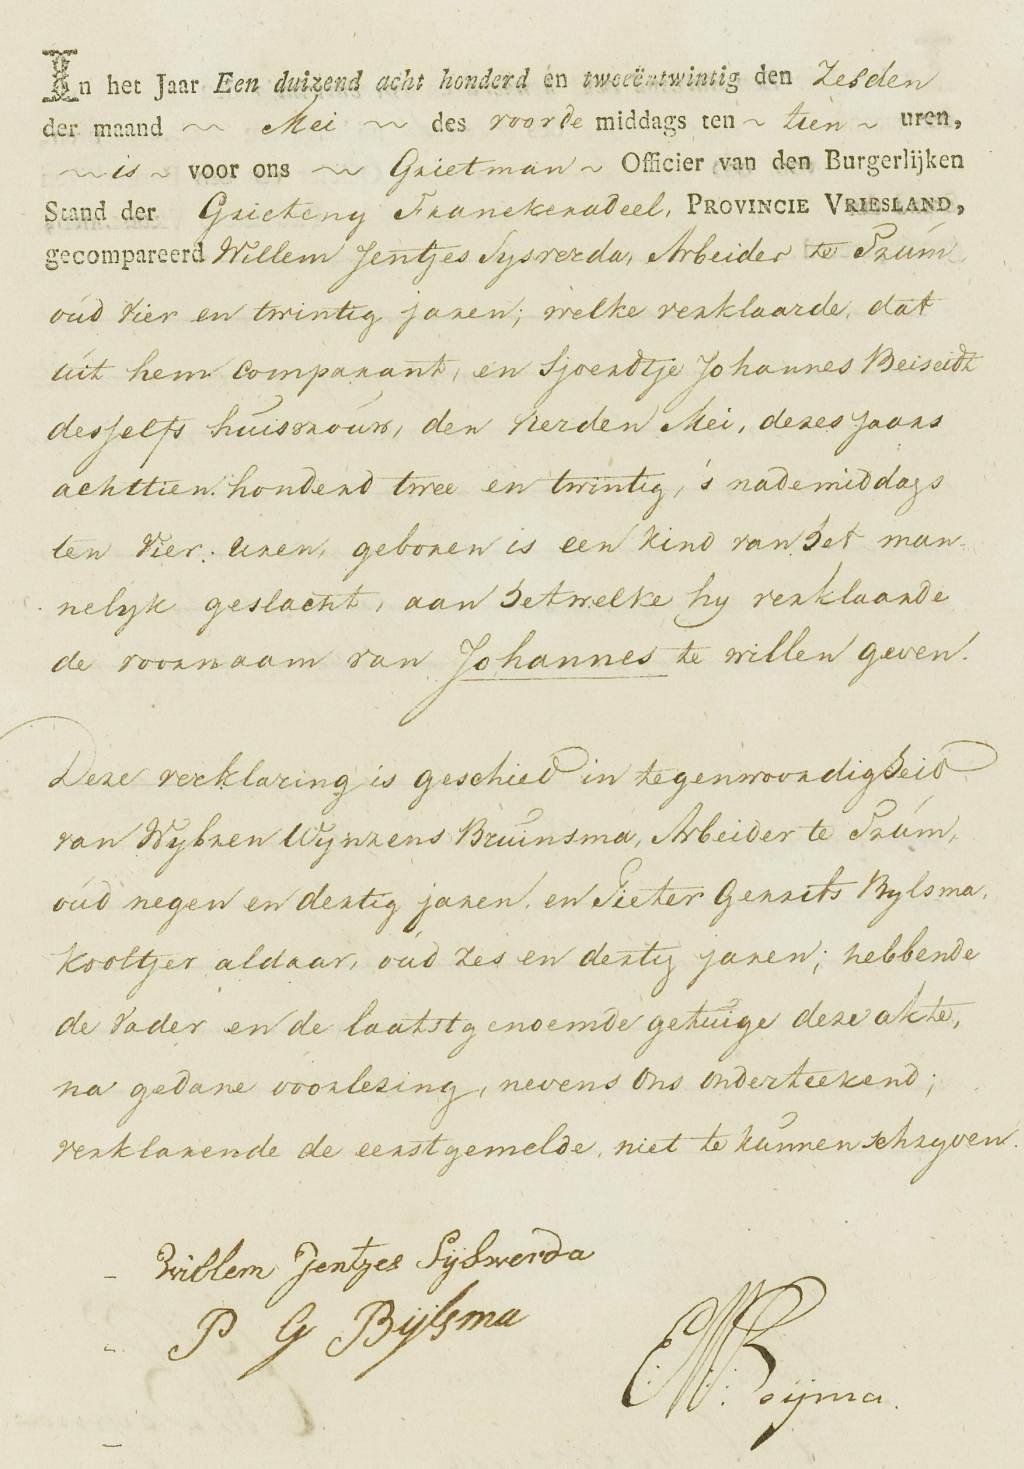 In het Jaar Een duizend acht honderd en tweeëntwintig den Zesden
der maand ~ Mei ~ des voorde middags ten ~ tien ~ uren,
~ is ~ voor ons ~ Grietman ~ Officier van den Burgerlijken
Stand der Grieteny Franekeradeel, PROVINCIE VRIESLAND,
gecompareerd Willem Jentjes Syswerda, Arbeider te Tzúm
oúd vier en twintig jaren; welke verklaarde, dat
úit hem comparant, en Sjoerdtje Johannes
desselfs húisvroúw, den derden Mei, dezes jaars
achttien honderd twee en twintig, 's nademiddags
ten vier uren, geboren is een kind van het man-
nelyk geslacht, aan hetwelke hy verklaarde
de voornaam van Johannes te willen geven.
Deze verklaring is geschied in tegenwoordigheid
van Wybren Wynzens Bruinsma, Arbeider te Tzúm,
oúd negen en dertig jaren, en Pieter Gerrits Bylsma,
kooltjer aldaar, oúd zes en dertig jaren; hebbende
de vader en de laatstgenoemde getuige deze akte,
na gedane voorlezing, nevens ons onderteekend;
verklarende de eerstgemelde, niet te kunnen schryven.
Willem Jentjes Sijswerda
P G Bijlsma